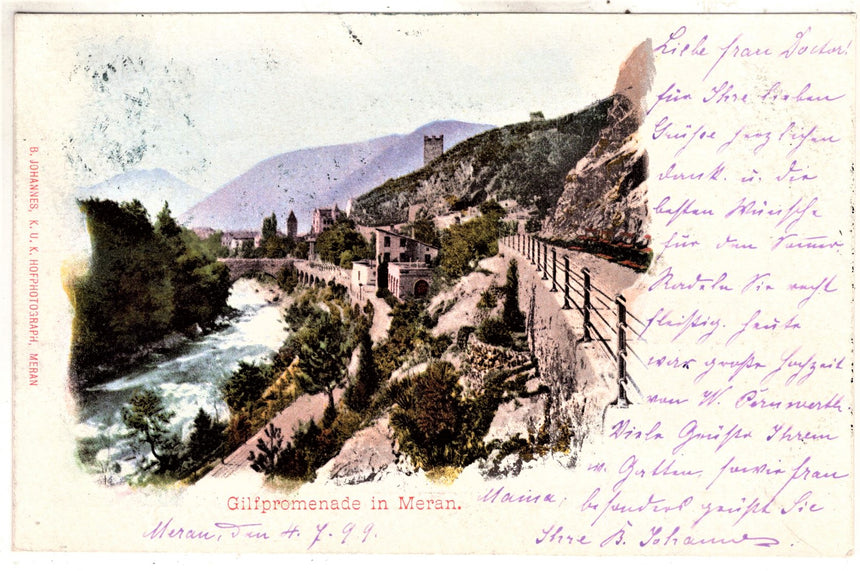 B. JOHANNES, K. U. K. HOFPHOTOGRAPH, MERAN
Liebe Frau Doctor!
für Ihre lieben
Grüße herzlichen
Dank u. die
besten Wünsche
für den Sommer
Radeln Sie recht
fleißig. Heute
war große Hochzeit
von W. Pernwerth
Viele Grüße Ihrem
w. Gatten, sowie Frau
Mama, besonders grüßt Sie
Ihre B. Johannes
Gilfpromenade in Meran.
Meran, den 4. 7. 99.